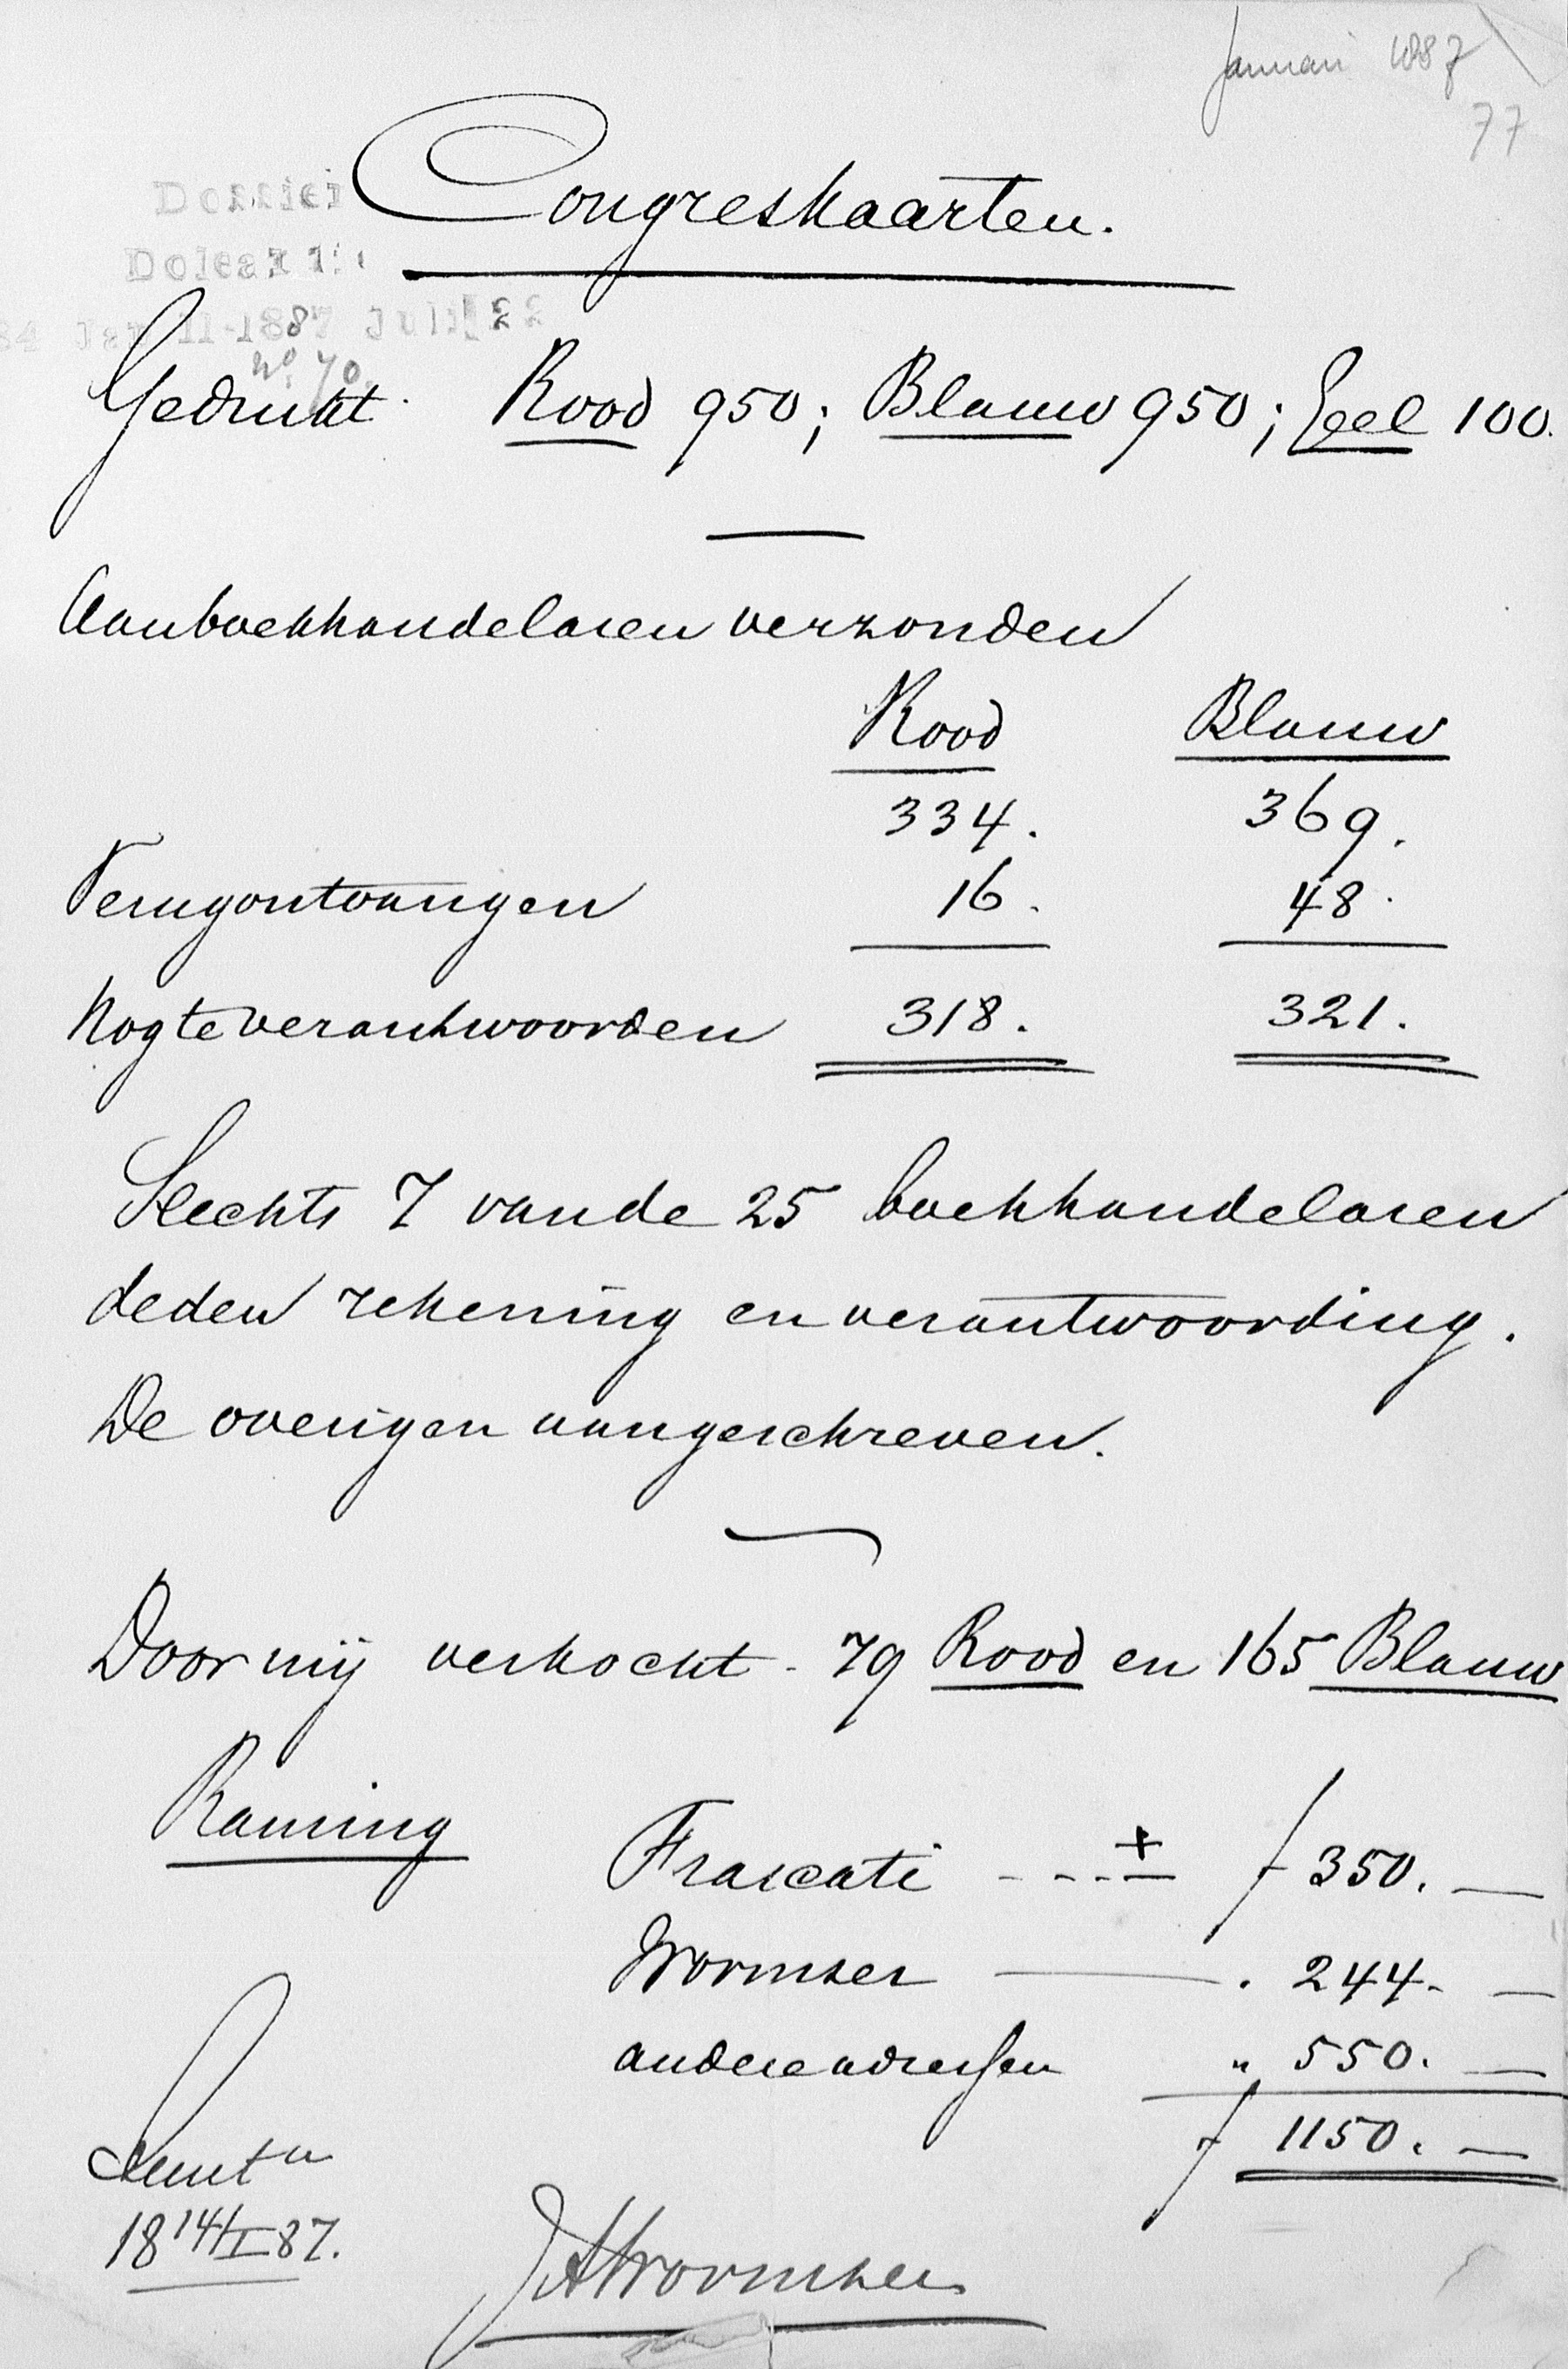 Januari 1887
77
Congreskaarten.
Dossier
Doleantie
84 Jan 11-1887 Juli 22
No. 70.
Gedrukt. Rood 950; Blauw 950; Geel 100.
Aan boekhandelaren verzonden
Rood Blauw
334. 369.
Terugontvangen 16. 48.
Nog te verantwoorden 318. 321.
Slechts 7 van de 25 boekhandelaren
deden rekening en verantwoording.
De overigen aangeschreven.
Door mij verkocht - 79 Rood en 165 Blauw
Raming Frascati - - - ± f 350. —
Wormser — . 244. —
andere adressen " 550. —
f 1150. —
Amstn
18 14/I 87.
JAWormser